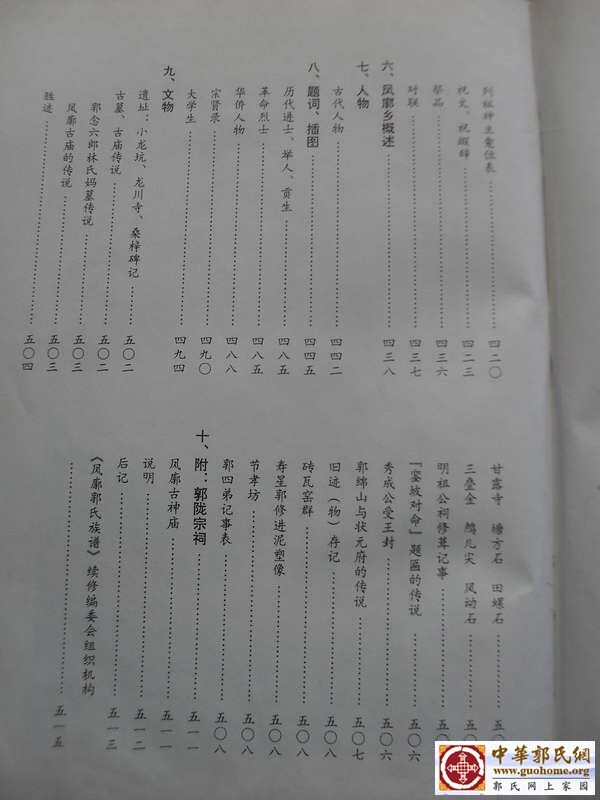 列祖神主龛位表……四二〇
祝文、祝嘏辞……四二三
祭品……四三六
对联……四三七
六、凤廓乡概述……四三八
七、人物
古代人物……四四二
八、题词、插图……四四五
历代进士、举人、贡生……四八五
革命烈士……四八五
华侨人物……四八八
宗贤录……四九〇
大学生……四九四
九、文物
遗址：小龙坑、龙川寺、桑梓碑记……五〇二
古墓、古庙传说……五〇二
郭念六郎林氏妈墓传说……五〇三
凤廓古庙的传说……五〇三
胜迹……五〇四
甘露寺 塘方石 田螺石……五〇
三叠金 尖 风动石……五〇
明祖公祠修葺记事……五〇
『窑坡对命』题匾的传说……五〇六
秀成公受王封……五〇六
郭绵山与状元府的传说……五〇七
旧迹（物）存记……五〇八
砖瓦窑群……五〇八
寿星郭修进泥塑像……五〇八
节孝坊……五〇八
郭四弟记事表……五〇八
十、附：郭陇宗祠……五一一
凤廓古神庙……五一一
说明……五一二
后记……五一三
《凤廓郭氏族谱》续修编委会组织机构
……五一五
中華郭氏網
www.guohome.org
郭氏网上家园